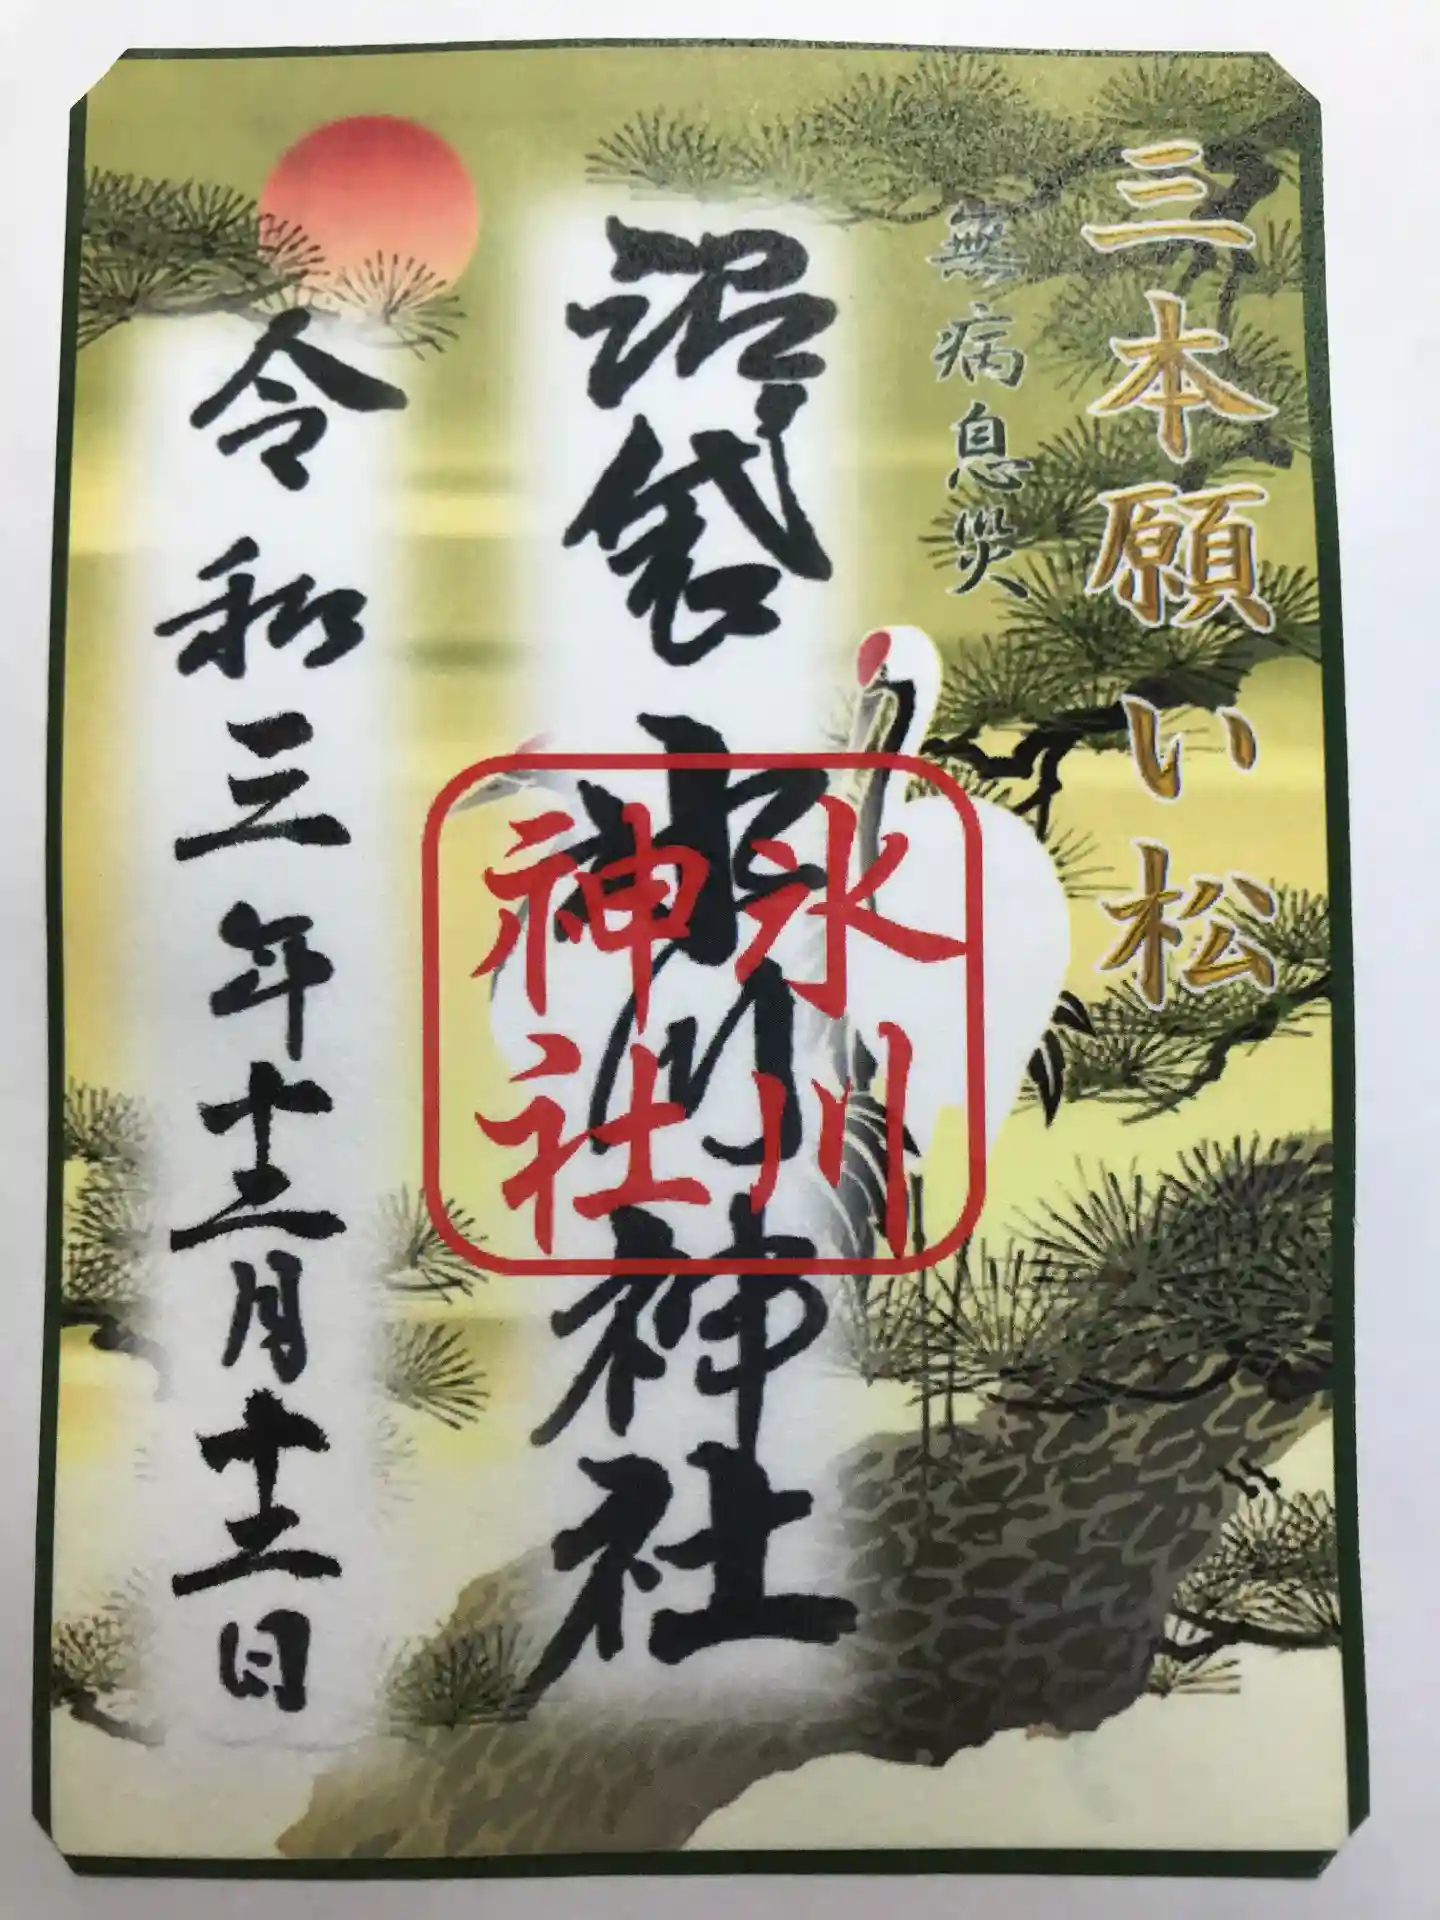 三本願い松
無病息災
沼袋氷川神社
氷川
神社
令和三年十二月十二日